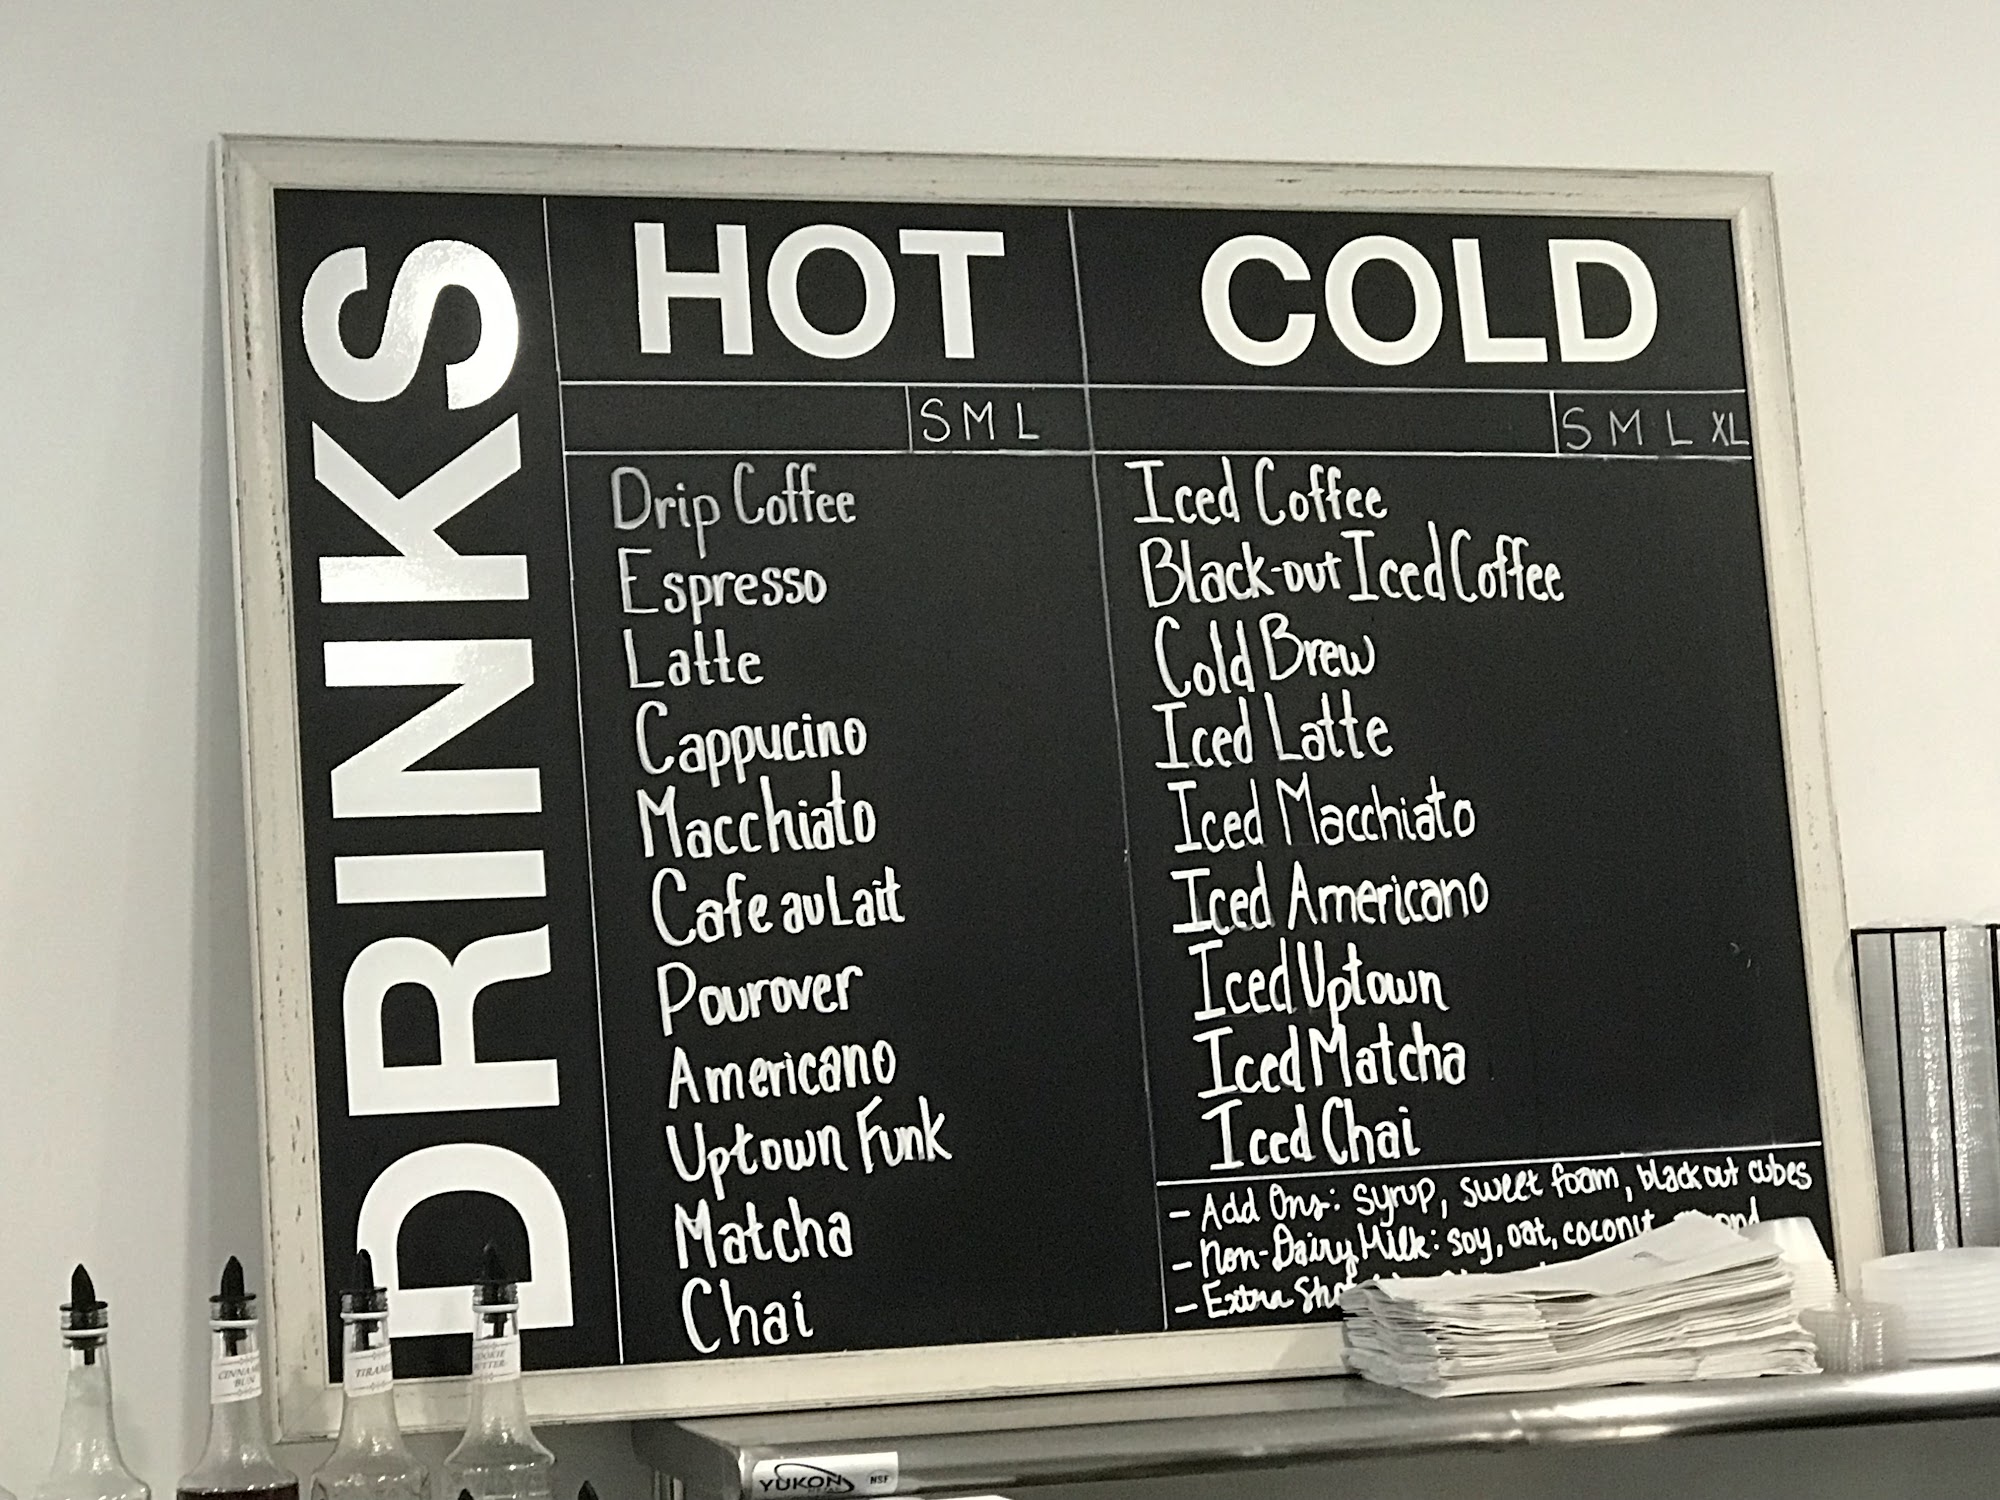 DRINKS
HOT
S M L
Drip Coffee
Espresso
Latte
Cappucino
Macchiato
Cafe au Lait
Pourover
Americano
Uptown Funk
Matcha
Chai
COLD
S M L XL
Iced Coffee
Black-out Iced Coffee
Cold Brew
Iced Latte
Iced Macchiato
Iced Americano
Iced Uptown
Iced Matcha
Iced Chai
- Add Ons: syrup, sweet foam, blackout cubes
- Non-Dairy Milk: soy, oat, coconut,
- Extra
CINNAMON
BUN
YUKON
NSF